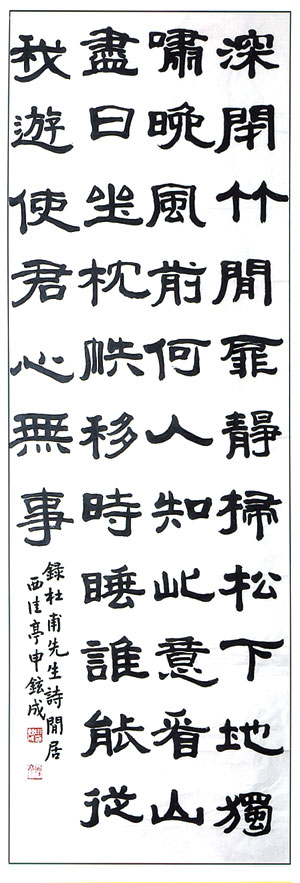 深閉竹間扉靜掃松下地獨
嘯晚風前何人知此意看山
盡日坐枕帙移時睡誰能從
我遊使君心無事
錄杜甫先生詩閒居
西佳亭申鉉成